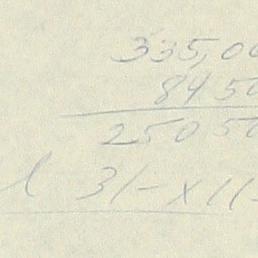 335,00
84 50
250 50
l 31-XII-